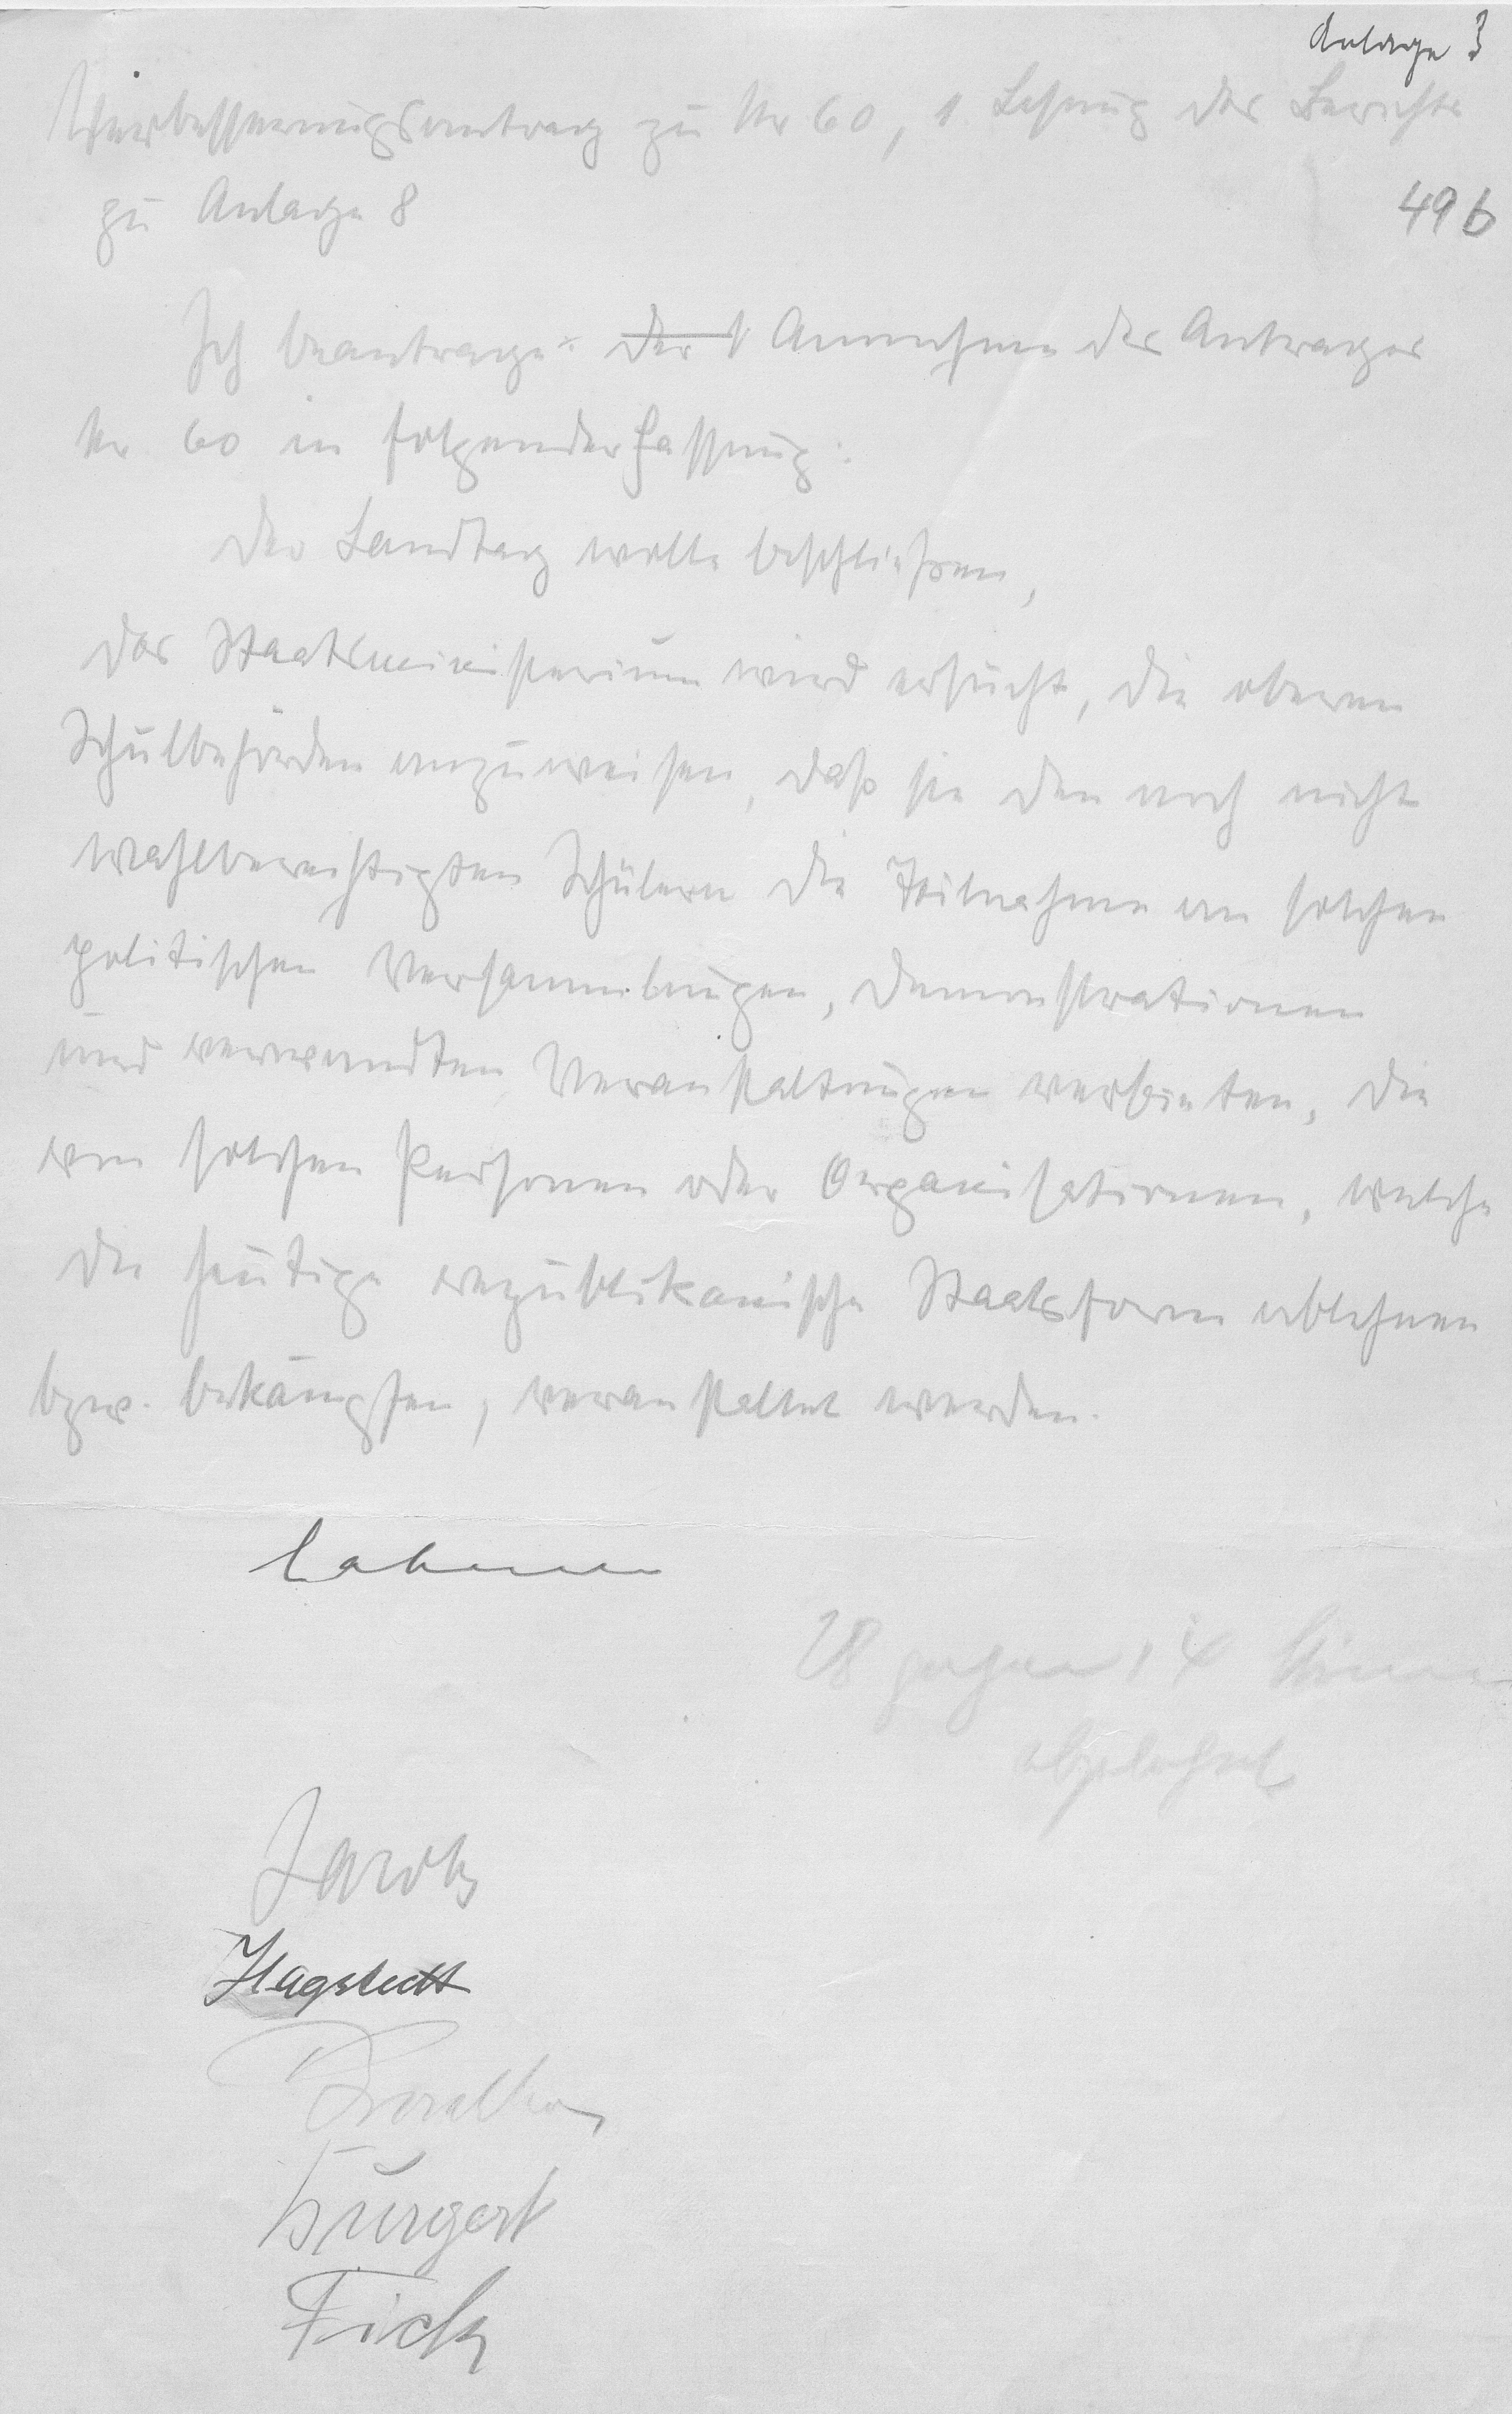 Anlage 3
Verbesserungsantrag zu Nr 60, 1. Lesung des Berichts
zu Anlage 8
49 b
Ich beantrage: der Annahme des Antrages
Nr 60 in folgender Fassung:
Der Landtag wolle beschließen,
das Staatsministerium wird ersucht, die oberen
Schulbehörden anzuweisen, daß sie den noch nicht
wahlberechtigten Schülern die Teilnahme an solchen
politischen Versammlungen, Demonstrationen
und verwandten Veranstaltungen verbieten, die
von solchen Personen oder Organisationen, welche
die heutige republikanische Staatsform ablehnen
bzw. bekämpfen, veranstaltet werden.
Lahmann
gegen 14 Stimmen
abgelehnt
Jacobs
Hagstedt
Burgert
Fick